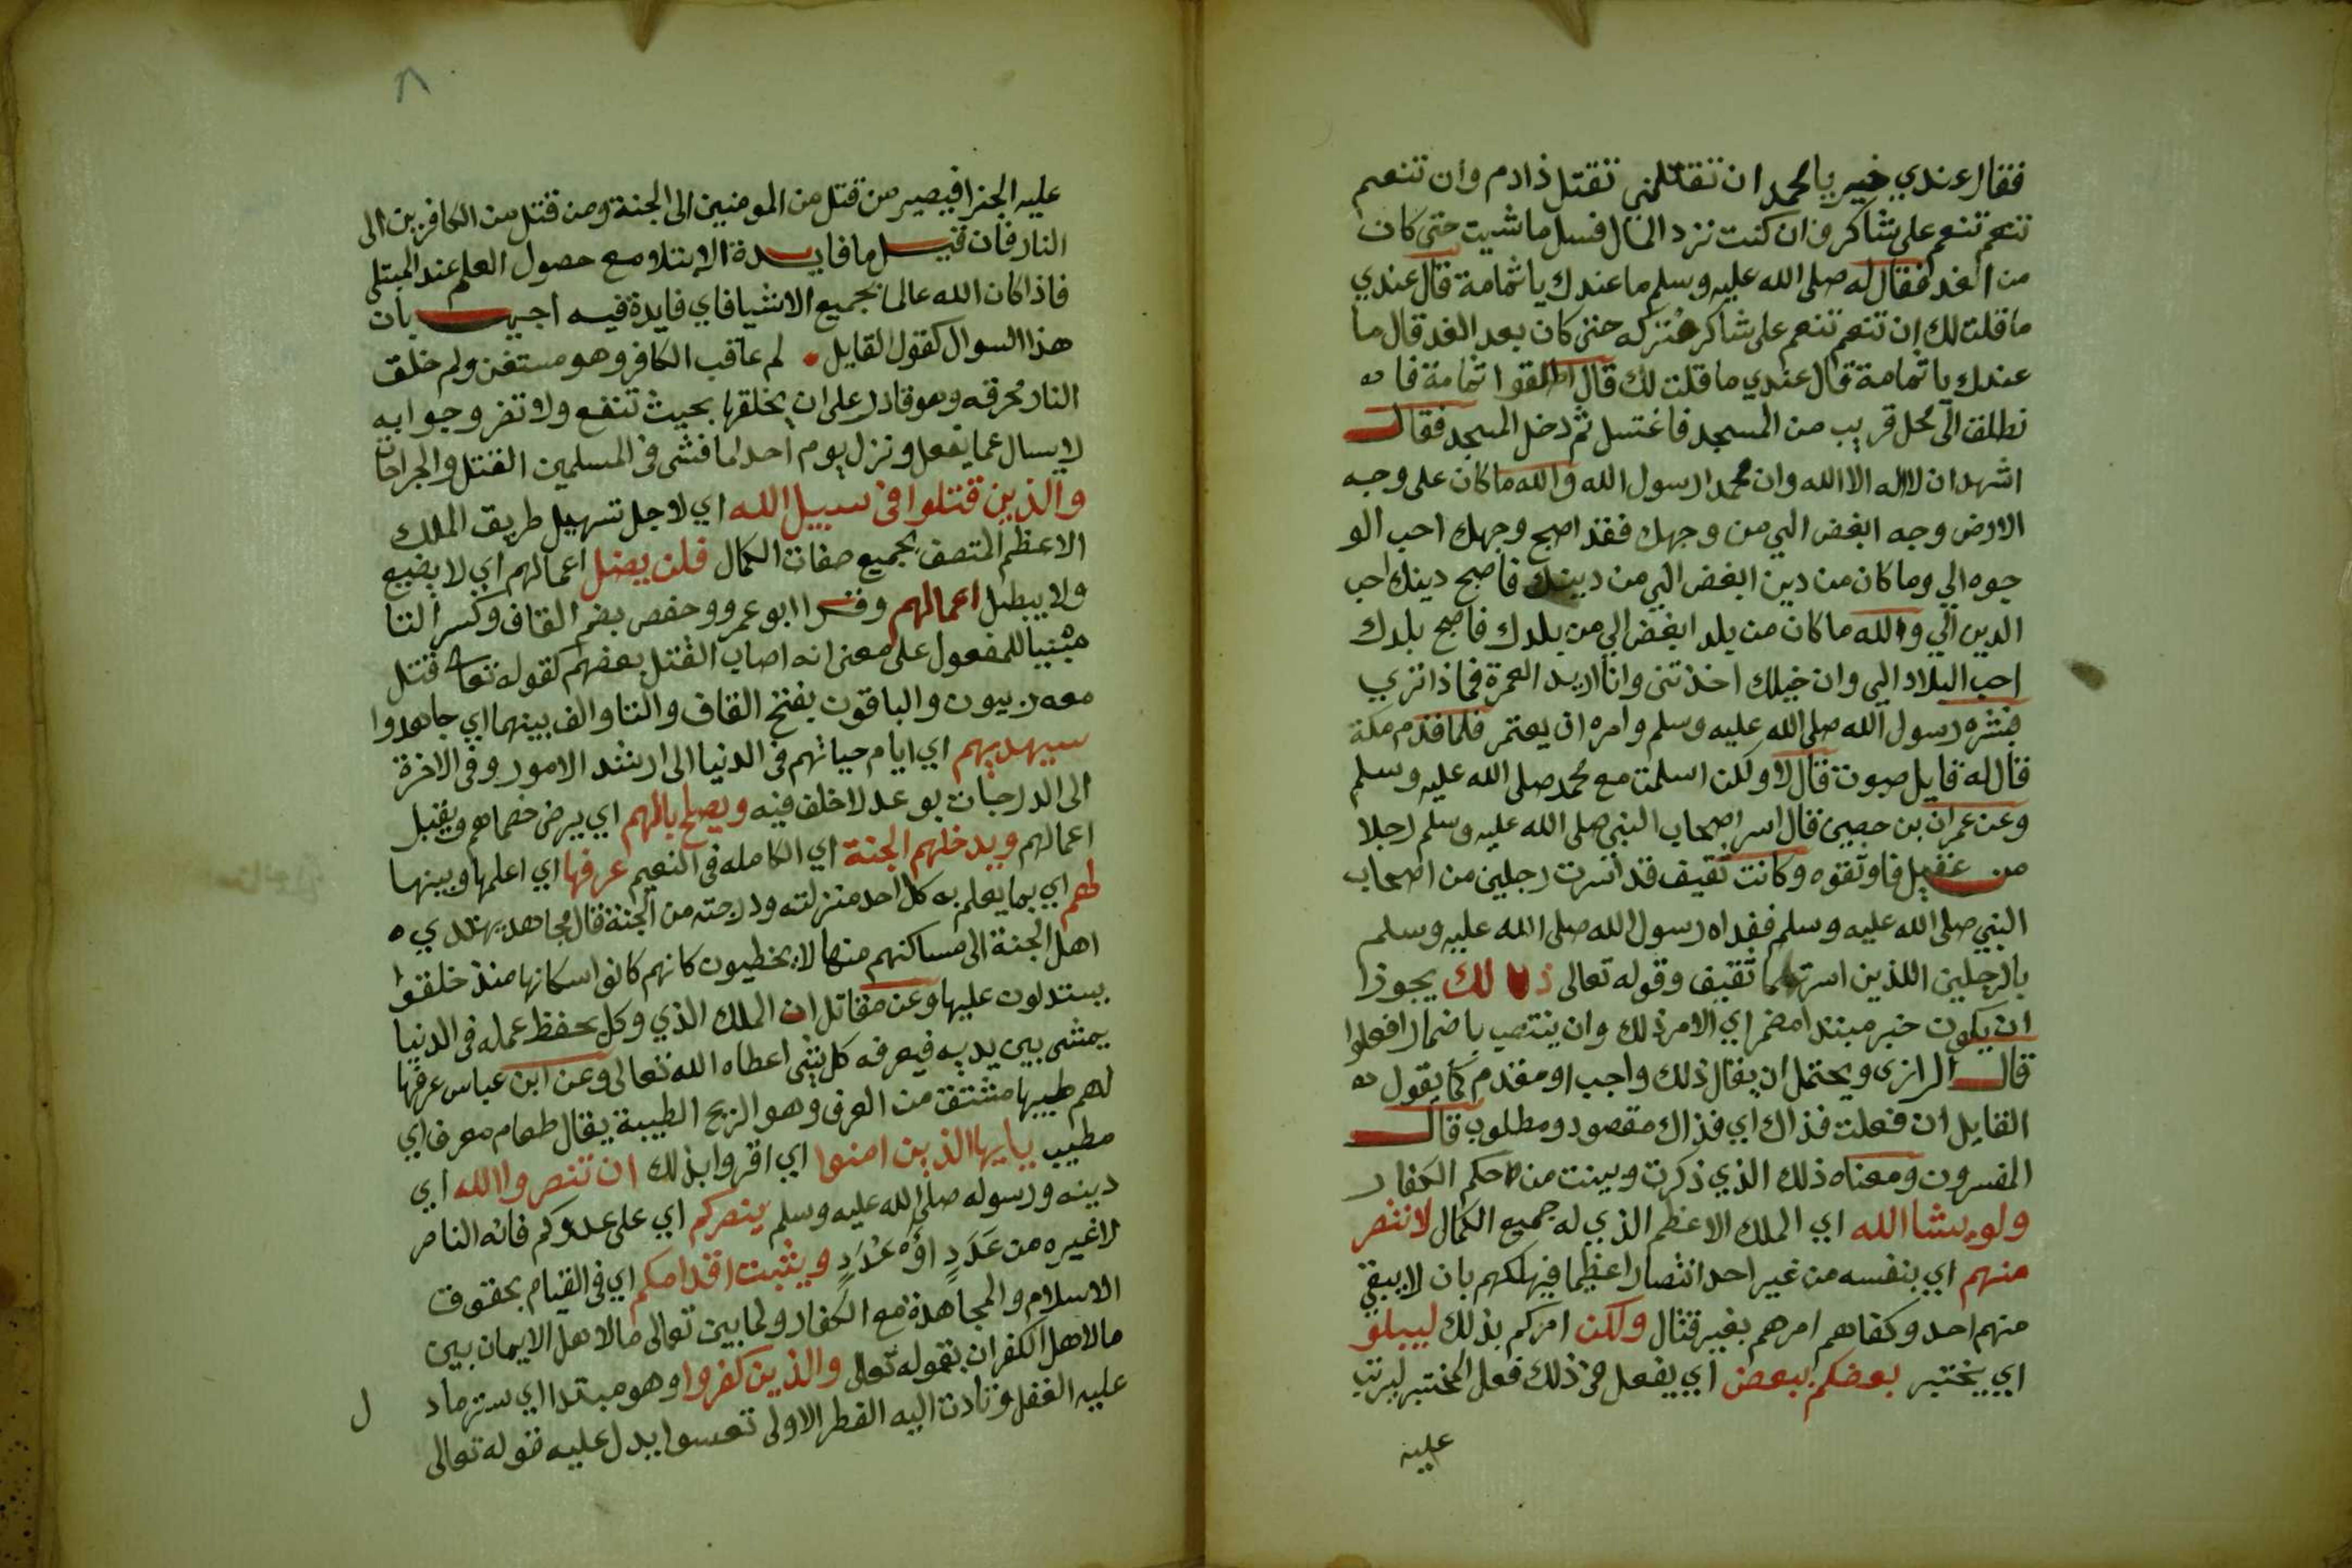 فقال عندي خير يا محمد ان تقتلني تقتل ذا دم وان تنعم
تنعم تنعم على شاكر وان كنت تزد المال فسل ما شيت حتى كان
من الغد فقال له صلى الله عليه وسلم ما عندك يا ثمامة قال عندي
ما قلت لك ان تنعم تنعم على شاكر فتركه حتى كان بعد الغد قال ما
عندك يا ثمامة قال عندي ما قلت لك قال اطلقوا ثمامة فا
نطلق الى محل قريب من المسجد فاغتسل ثم دخل المسجد فقال
اشهد ان لا اله الا الله وان محمدا رسول الله والله ما كان على وجه
الارض وجه ابغض الي من وجهك فقد اصبح وجهك احب الو
جوه الي وما كان من دين ابغض الي من دينك فاصبح دينك احب
الدين الي والله ما كان من بلد ابغض الي من بلدك فاصبح بلدك
احب البلاد الي وان خيلك اخذتني وانا اريد العمرة فماذا تري
فبشره رسول الله صلى الله عليه وسلم وامره ان يعتمر فلما قدم مكة
قال له قايل صبوت قال لا ولكن اسلمت مع محمد صلى الله عليه وسلم
وعن عمران بن حصين قال اسر اصحاب النبي صلى الله عليه وسلم رجلا
من عقيل فاوثقوه وكانت ثقيف قد اسرت رجلين من اصحاب
النبي صلى الله عليه وسلم ففداه رسول الله صلى الله عليه وسلم
بالرجلين اللذين اسرتهما ثقيف وقوله تعالى ذلك يجوز ا
ان يكون خبر مبتدا مضمر اي الامر ذلك وان ينتصب باضمار افعلوا
قال الرازي ويحتمل ان يقال ذلك واجب او مقدم كما يقول
القايل ان فعلت فذاك اي فذاك مقصود ومطلوب قال
المفسرون ومعناه ذلك الذي ذكرت وبينت من حكم الكفار
ولو يشا الله اي الملك الاعظم الذي له جميع الكمال لانتصر
منهم اي بنفسه من غير احد انتصارا عظيما فيهلكهم بان لا يبقي
منهم احد وكفاهم امرهم بغير قتال ولكن امركم بذلك ليبلو
اي يختبر بعضكم ببعض اي يفعل في ذلك فعل المختبر ليرتب
عليه
عليه الجزا فيصير من قتل من المومنين الى الجنة ومن قتل من الكافرين الى
النار فان قيل ما فايدة الابتلا مع حصول العلم عند المبتلى
فاذا كان الله عالما بجميع الاشيا فاي فايدة فيه اجيب بان
هذا السوال كقول القايل لم عاقب الكافر وهو مستغن ولم خلق
النار محرقه وهو قادر على ان يخلقها بحيث تنفع ولا تضر وجوابه
لا يسال عما يفعل ونزل يوم احد لما فشى في المسلمين القتل والجراحات
والذين قتلوا في سبيل الله اي لاجل تسهيل طريق الملك
الاعظم المتصف بجميع صفات الكمال فلن يضل اعمالهم اي لا يضيع
ولا يبطل اعمالهم وقرا ابو عمرو وحفص بضم القاف وكسر التا
مبنيا للمفعول على معنى انه اصاب القتل بعضهم كقوله تعالى قتل
معه ربيون والباقون بفتح القاف والتا والف بينهما اي جاهدوا
سيهديهم اي ايام حياتهم في الدنيا الى ارشد الامور وفي الاخرة
الى الدرجات بوعد لا خلف فيه ويصلح بالهم اي يرض خصماهم ويقبل
اعمالهم ويدخلهم الجنة اي الكامله في النعيم عرفها اي اعلمها وبينها
لهم اي بما يعلم به كل احد منزلته ودرجته من الجنة قال مجاهد يهتدي
اهل الجنة الى مساكنهم منها لا يخطيون كانهم كانوا سكانها منذ خلقوا
يستدلون عليها وعن مقاتل ان الملك الذي وكل بحفظ عمله في الدنيا
يمشي بين يديه فيعرفه كل شي اعطاه الله تعالى وعن ابن عباس عرفها
لهم طيبها مشتق من العرف وهو الريح الطيبة يقال طعام معرف اي
مطيب يا يها الذين امنوا اي اقروا بذلك ان تنصروا الله اي
دينه ورسوله صلى الله عليه وسلم ينصركم اي على عدوكم فانه الناصر
لا غيره من عَدَدٍ او عُدَدٍ ويثبت اقدامكم اي في القيام بحقوق
الاسلام والمجاهدة مع الكفار ولما بين تعالى ما لاهل الايمان بين
ما لاهل الكفران بقوله تعالى والذين كفروا وهو مبتدا اي ستر ما د
ل
عليه العقل وقادت اليه الفطر الاولى تعسوا يدل عليه قوله تعالى